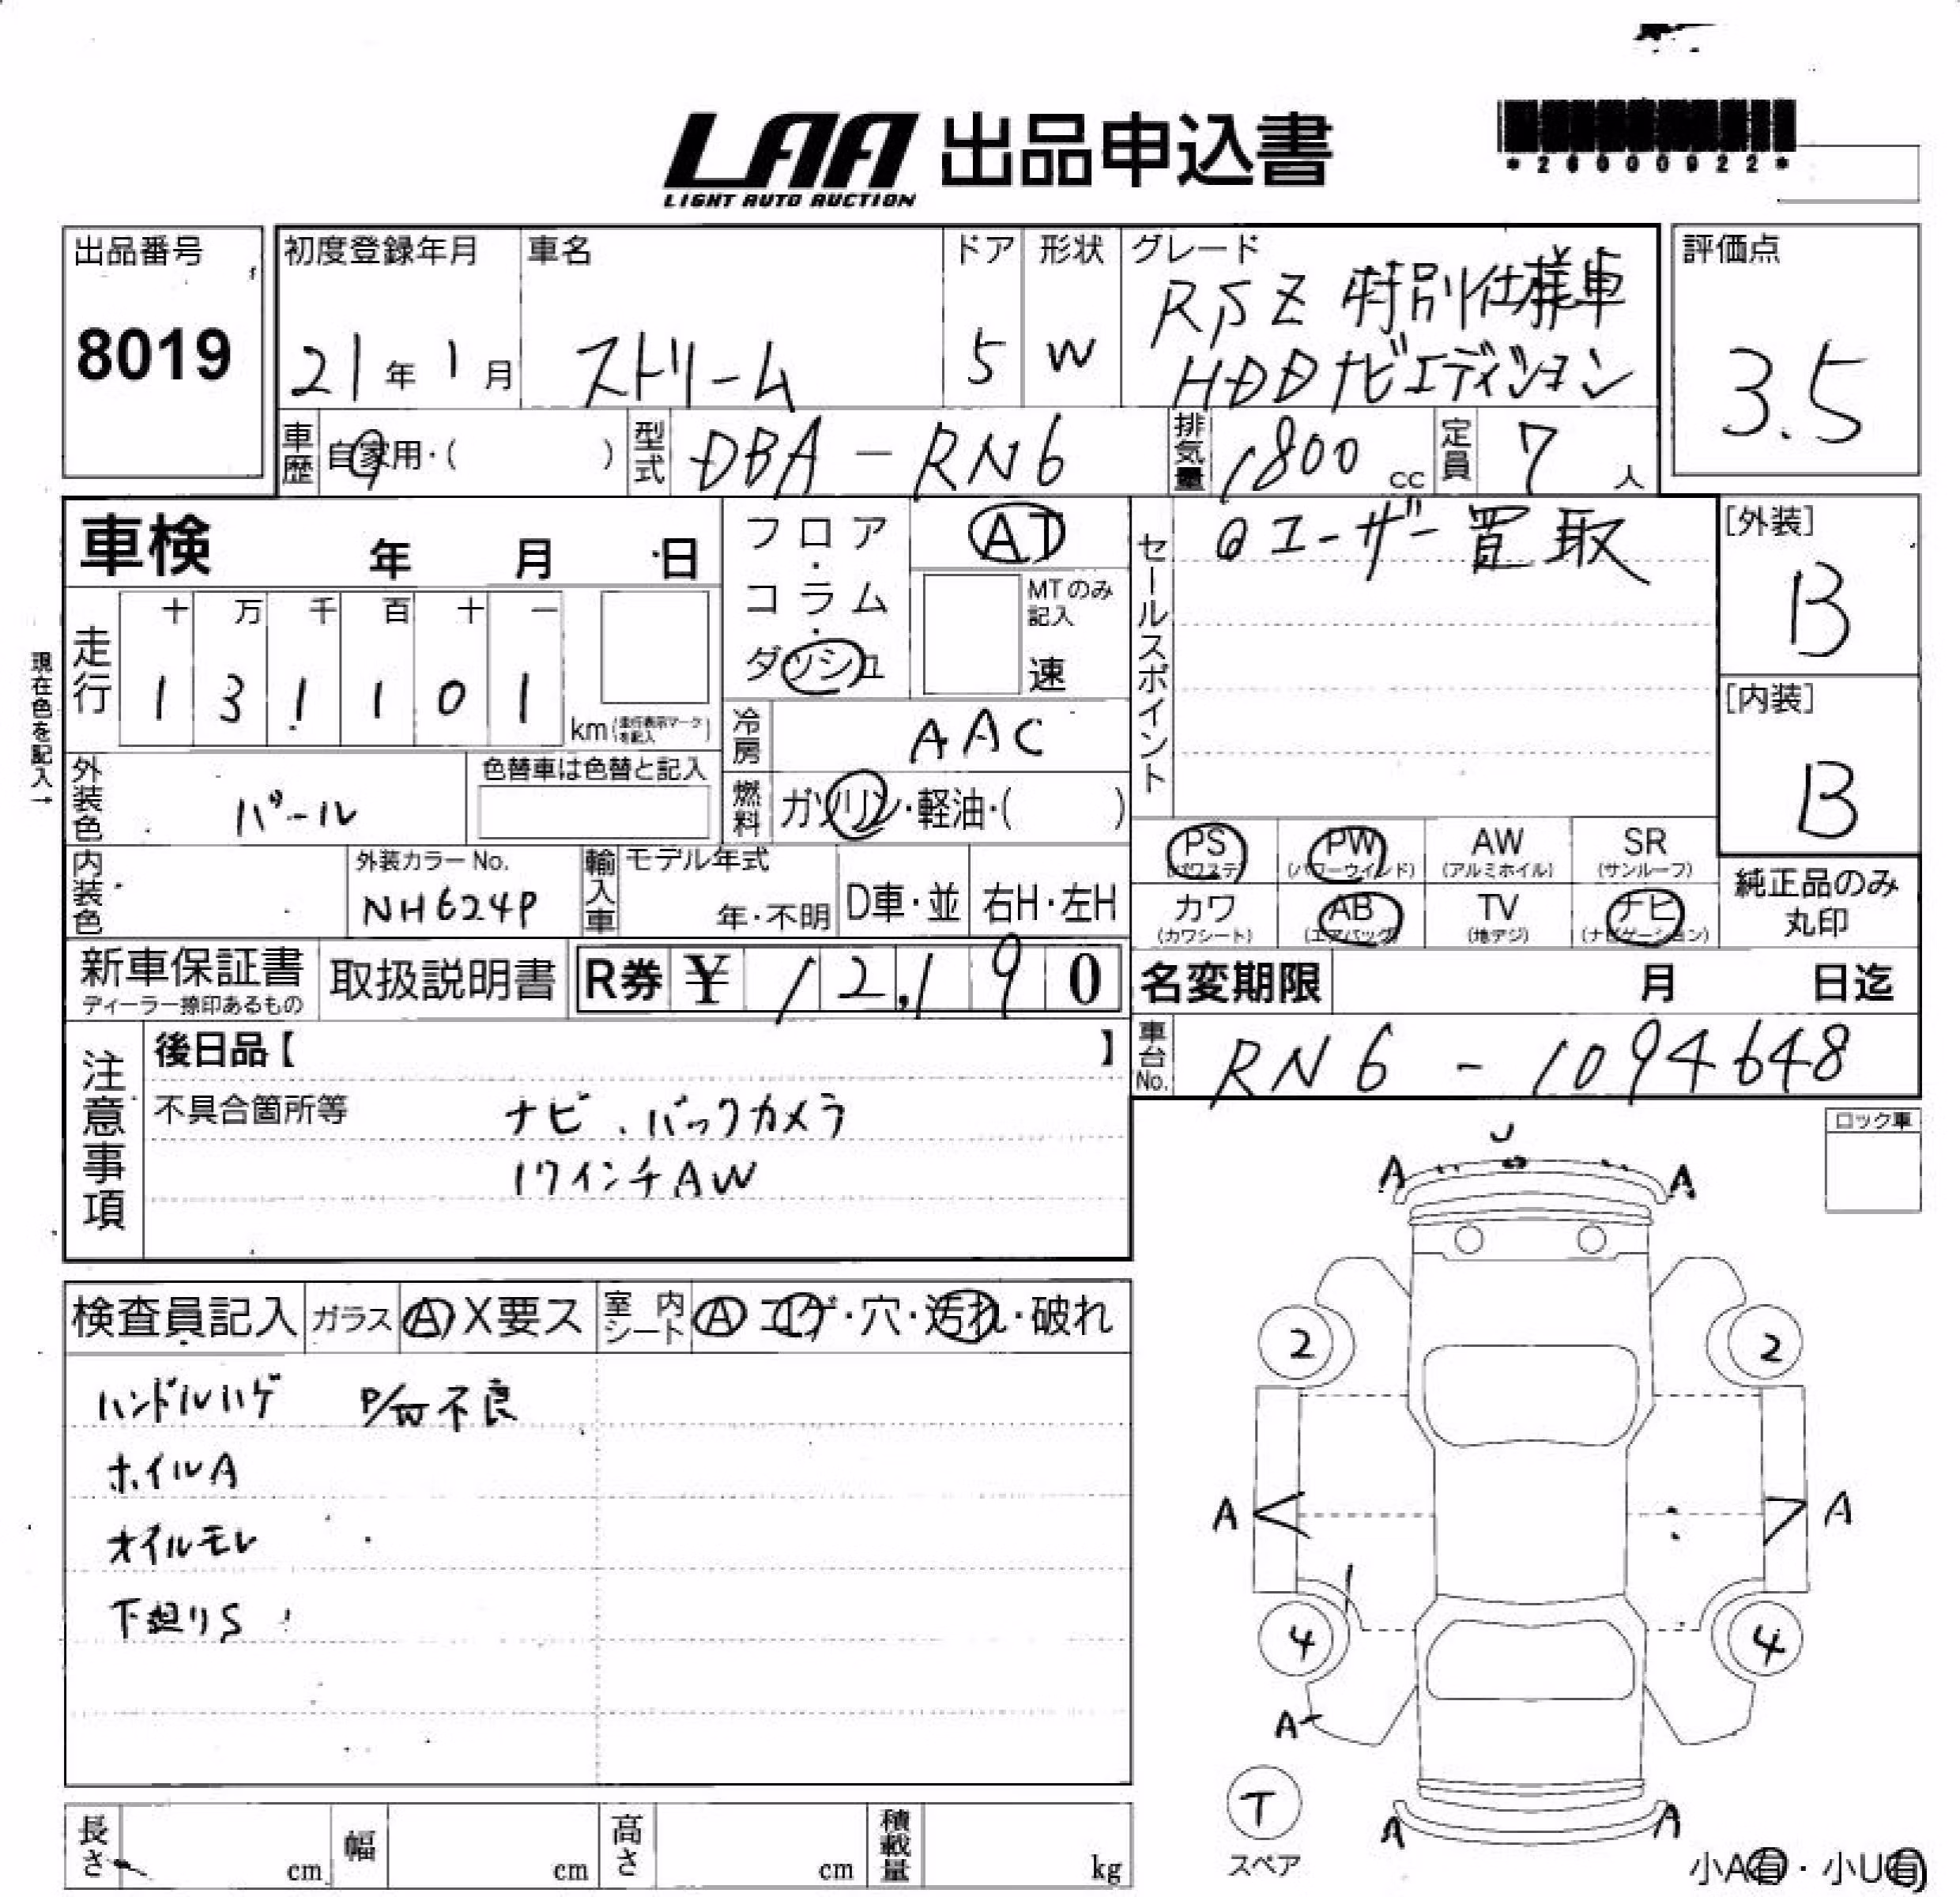 LAA 出品申込書
LIGHT AUTO AUCTION
*26000922*
出品番号
8019
初度登録年月
21年1月
車名
ストリーム
ドア
5
形状
W
グレード
RSZ 特別仕様車
HDDナビエディション
評価点
3.5
車歴
自家用・( )
型式
DBA-RN6
排気量
1800 cc
定員
7 人
車検 年 月 日
走行
十 万 千 百 十 一
1 3 1 1 0 1
km(走行表示マークを記入)
現在色を記入→
フロア・コラム・ダッシュ
AT
MTのみ記入
速
冷房
AAC
燃料
ガソリン・軽油・( )
セールスポイント
@ユーザー買取
[外装]
B
[内装]
B
外装色
パール
色替車は色替と記入
内装色
外装カラーNo.
NH624P
輸入車
モデル年式
年・不明
D車・並
右H・左H
PS
(パワステ)
PW
(パワーウインド)
AW
(アルミホイル)
SR
(サンルーフ)
カワ
(カワシート)
AB
(エアバッグ)
TV
(地デジ)
ナビ
(ナビゲーション)
純正品のみ
丸印
新車保証書
ディーラー捺印あるもの
取扱説明書
R券 ¥ 12,190
名変期限 月 日迄
車台No.
RN6-1094648
注意事項
後日品【 】
不具合箇所等
ナビ、バックカメラ
17インチAW
ロック車
検査員記入
ガラス
A X要ス
室内シート
A コゲ・穴・汚れ・破れ
ハンドルハゲ P/W不良
ホイルA
オイルモレ
下廻りS
U
A A
2 2
A A
4 4
A
T
スペア
A A
小A有・小U有
長さ cm
幅 cm
高さ cm
積載量 kg